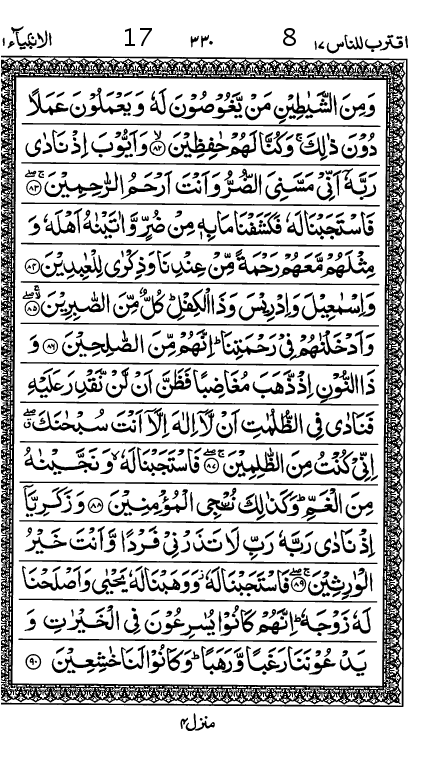 اقترب للناس ۱۷ 8 ۳۳۰ 17 الانبیآء
وَمِنَ الشَّیٰطِیْنِ مَنْ یَّغُوْصُوْنَ لَهٗ وَیَعْمَلُوْنَ عَمَلًا
دُوْنَ ذٰلِكَ ۚ وَكُنَّا لَهُمْ حٰفِظِیْنَ ۙ﴿۸۲﴾ وَاَیُّوْبَ اِذْ نَادٰی
رَبَّهٗۤ اَنِّیْ مَسَّنِیَ الضُّرُّ وَاَنْتَ اَرْحَمُ الرّٰحِمِیْنَ ۚۖ﴿۸۳﴾
فَاسْتَجَبْنَا لَهٗ فَكَشَفْنَا مَا بِهٖ مِنْ ضُرٍّ وَّاٰتَیْنٰهُ اَهْلَهٗ وَ
مِثْلَهُمْ مَّعَهُمْ رَحْمَةً مِّنْ عِنْدِنَا وَذِكْرٰی لِلْعٰبِدِیْنَ ﴿۸۴﴾
وَاِسْمٰعِیْلَ وَاِدْرِیْسَ وَذَا الْكِفْلِ ؕ كُلٌّ مِّنَ الصّٰبِرِیْنَ ۚۖ﴿۸۵﴾
وَاَدْخَلْنٰهُمْ فِیْ رَحْمَتِنَا ؕ اِنَّهُمْ مِّنَ الصّٰلِحِیْنَ ﴿۸۶﴾ وَ
ذَا النُّوْنِ اِذْ ذَّهَبَ مُغَاضِبًا فَظَنَّ اَنْ لَّنْ نَّقْدِرَ عَلَیْهِ
فَنَادٰی فِی الظُّلُمٰتِ اَنْ لَّاۤ اِلٰهَ اِلَّاۤ اَنْتَ سُبْحٰنَكَ ۖۗ
اِنِّیْ كُنْتُ مِنَ الظّٰلِمِیْنَ ۚۖ﴿۸۷﴾ فَاسْتَجَبْنَا لَهٗ ۙ وَنَجَّیْنٰهُ
مِنَ الْغَمِّ ؕ وَكَذٰلِكَ نُـْۨجِی الْمُؤْمِنِیْنَ ﴿۸۸﴾ وَزَكَرِیَّاۤ
اِذْ نَادٰی رَبَّهٗ رَبِّ لَا تَذَرْنِیْ فَرْدًا وَّاَنْتَ خَیْرُ
الْوٰرِثِیْنَ ۚۖ﴿۸۹﴾ فَاسْتَجَبْنَا لَهٗ ؗ وَوَهَبْنَا لَهٗ یَحْیٰی وَاَصْلَحْنَا
لَهٗ زَوْجَهٗ ؕ اِنَّهُمْ كَانُوْا یُسٰرِعُوْنَ فِی الْخَیْرٰتِ وَ
یَدْعُوْنَنَا رَغَبًا وَّرَهَبًا ؕ وَكَانُوْا لَنَا خٰشِعِیْنَ ﴿۹۰﴾
منزل ۴